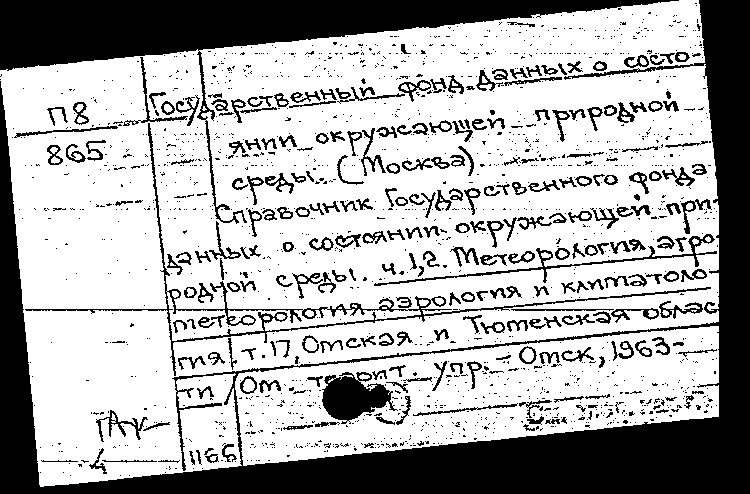 П8
865
Государственный фонд данных о состо-
янии окружающей природной
среды. (Москва).
Справочник Государственного фонда
данных о состоянии окружающей при-
родной среды. ч.1,2. Метеорология, агро-
метеорология, аэрология и климатоло-
гия. т.17, Омская и Тюменская облас-
ти / Ом. террит. упр. - Омск, 1963-
1166